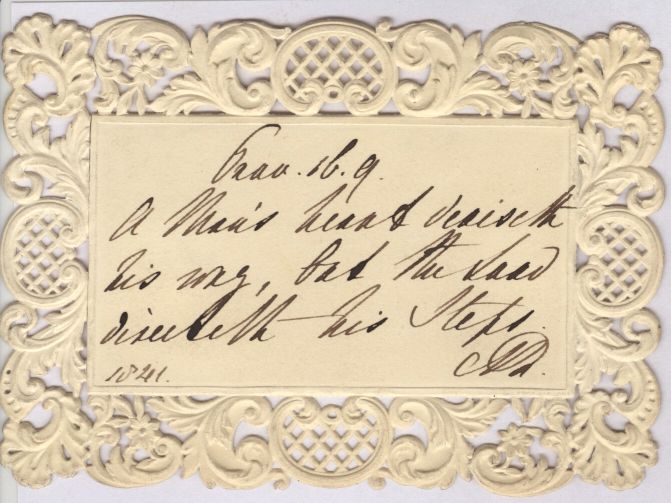 Prov. 16. 9.
A Man's heart deviseth
his way, but the Lord
directeth his Steps.
1841.